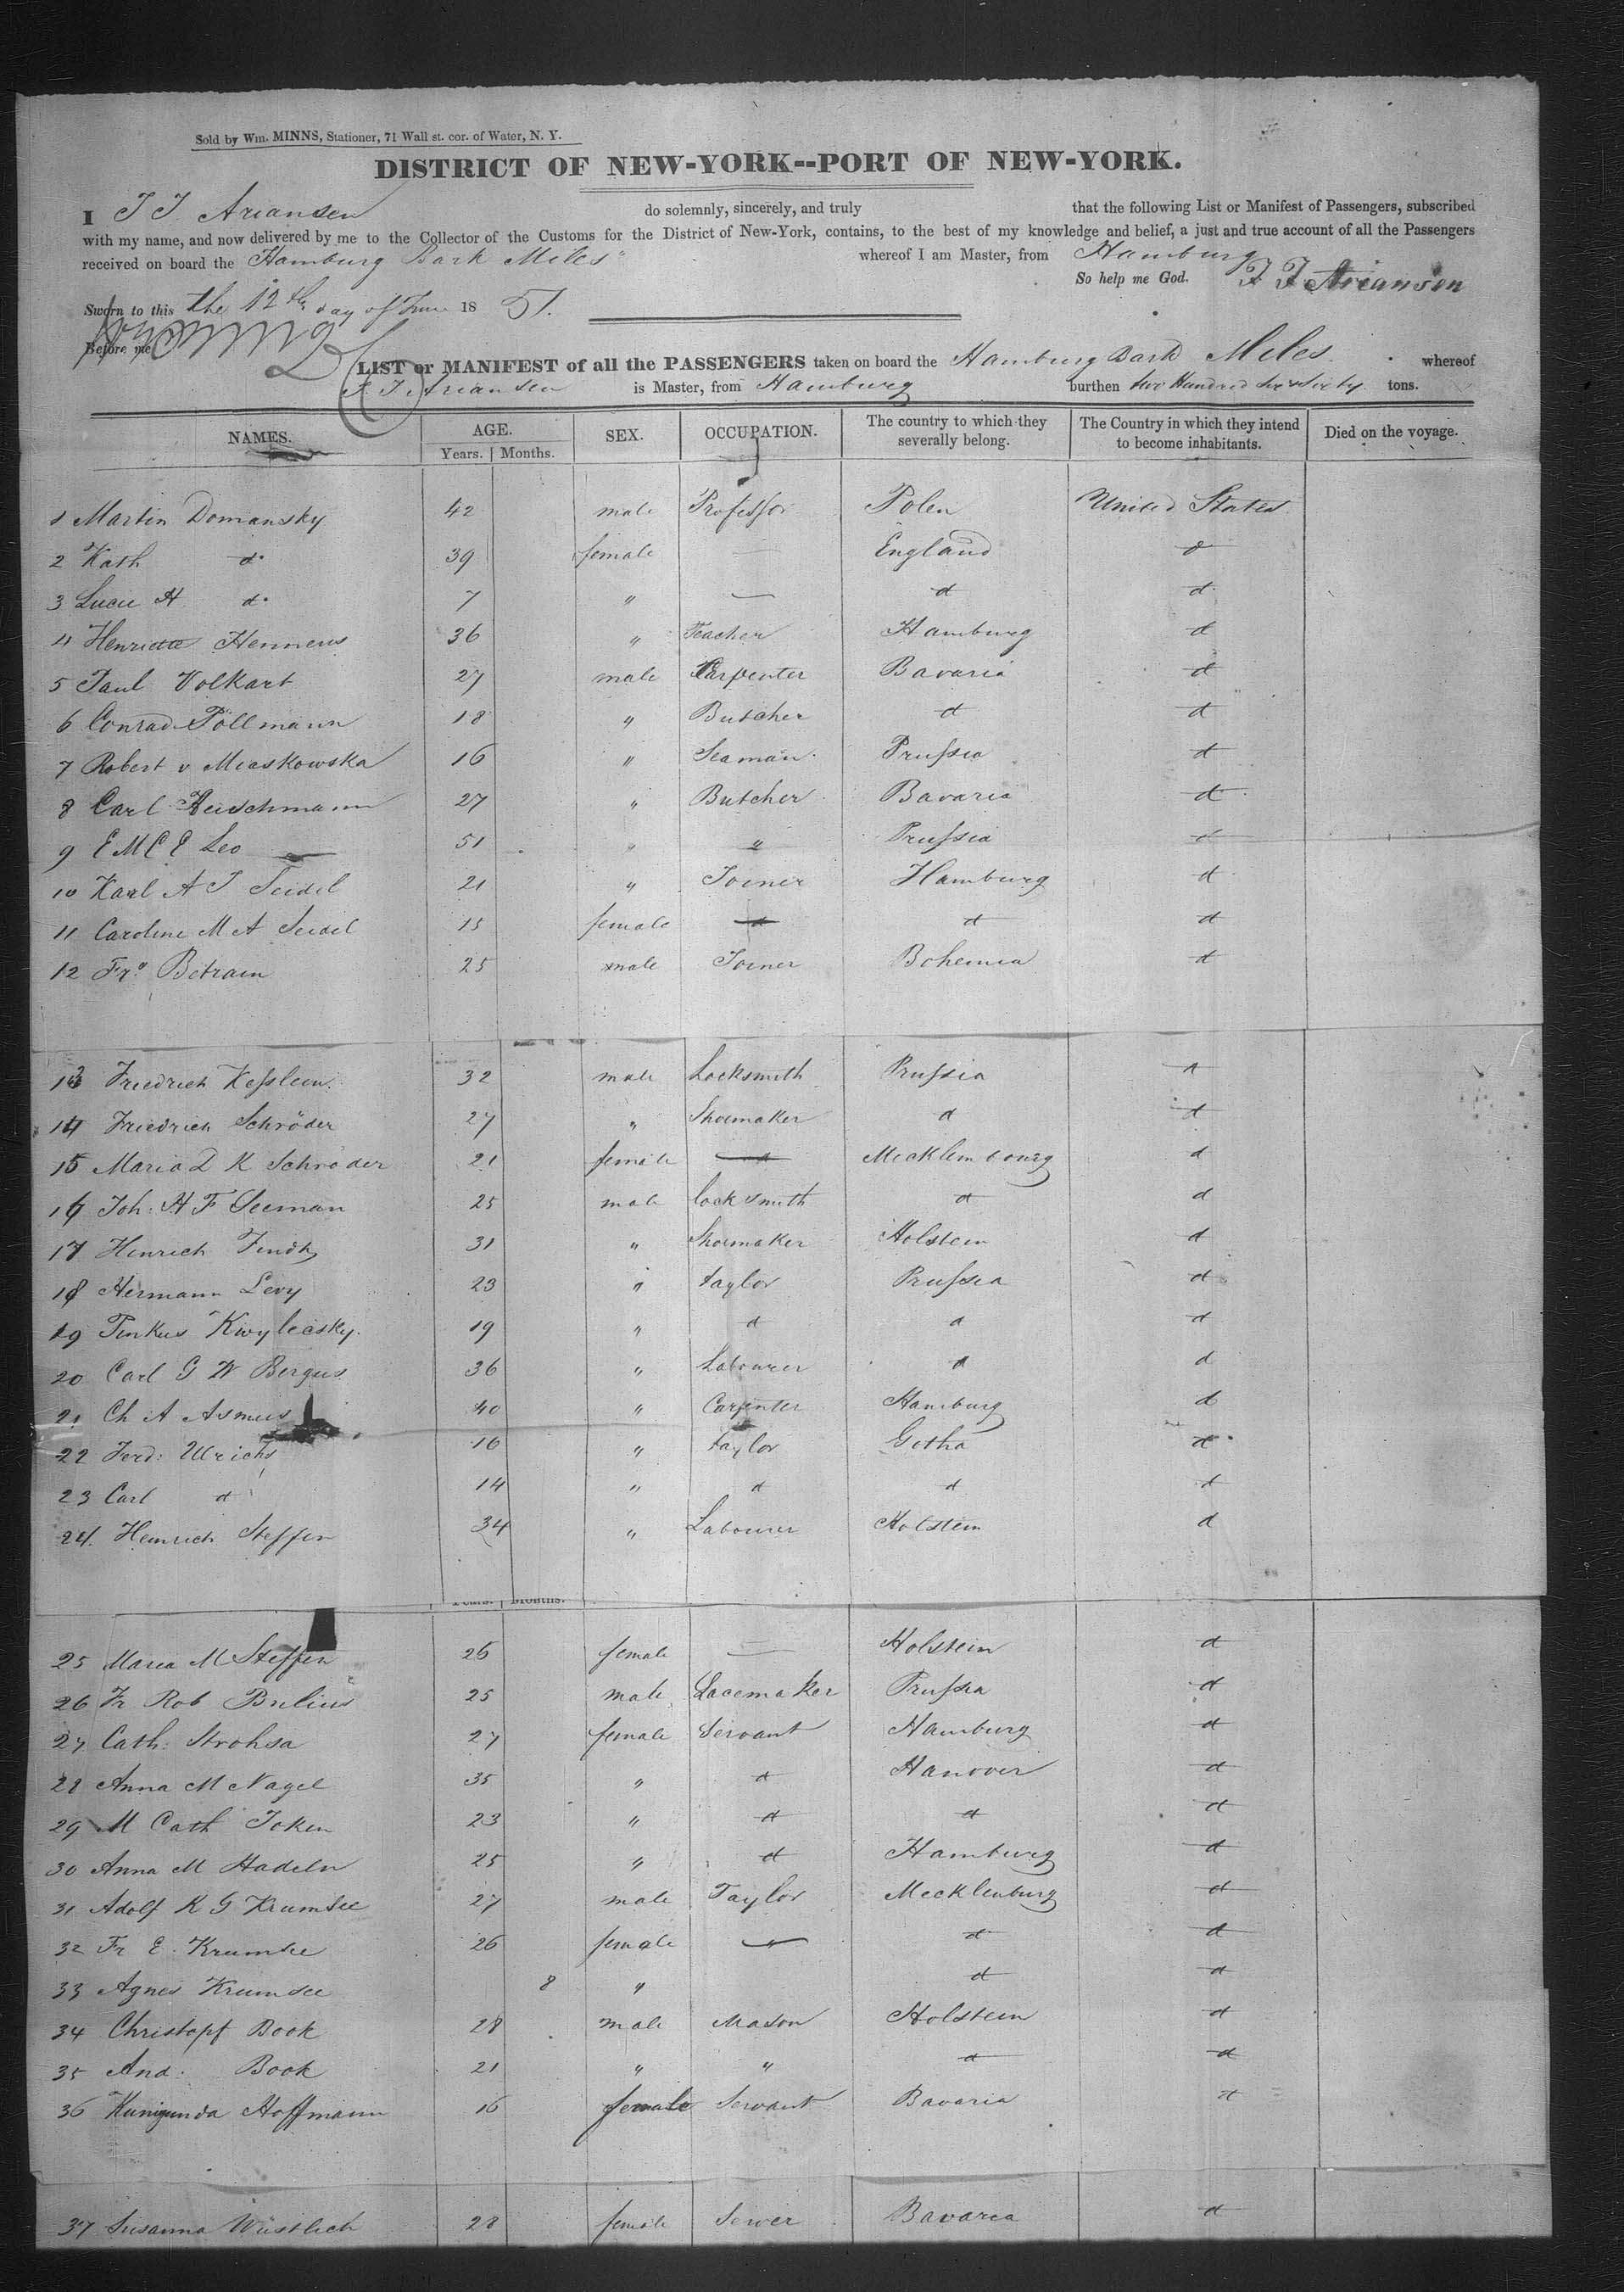 Sold by Wm. MINNS, Stationer, 71 Wall st. cor. of Water, N. Y.
DISTRICT OF NEW-YORK--PORT OF NEW-YORK.
I J J Ariansen do solemnly, sincerely, and truly that the following List or Manifest of Passengers, subscribed
with my name, and now delivered by me to the Collector of the Customs for the District of New-York, contains, to the best of my knowledge and belief, a just and true account of all the Passengers
received on board the Hamburg Bark Miles" whereof I am Master, from Hamburg
So help me God. J J Ariansen
Sworn to this the 12th day of June 1851.
Before me
LIST or MANIFEST of all the PASSENGERS taken on board the Hamburg Bark Miles. whereof
J. J. Ariansen is Master, from Hamburg burthen two Hundred six & sixty tons.
NAMES. AGE. SEX. OCCUPATION. The country to which they severally belong. The Country in which they intend to become inhabitants. Died on the voyage.
Years. Months.
1 Martin Domansky 42 male Professor Polen United States
2 Kath do 39 female — England d
3 Lucie H do 7 " — d d
4 Henriette Hennews 36 " Teacher Hamburg d
5 Paul Volkart 27 male Carpenter Bavaria d
6 Conrad Pöllmann 18 " Butcher d d
7 Robert v Miaskowska 16 " Seaman Prussia d
8 Carl Reischmann 27 " Butcher Bavaria d
9 E M C E Leo 51 " " Prussia d
10 Karl A J Seidel 21 " Joiner Hamburg d
11 Caroline M A Seidel 15 female d d
12 Frs Betram 25 male Joiner Bohemia d
13 Friedrich Kesslein 32 male Locksmith Prussia d
14 Friedrich Schröder 27 " Shoemaker d d
15 Maria D K Schröder 21 female Mecklembourg d
16 Joh. H F Seeman 25 male locksmith d d
17 Hinrich 31 " Shoemaker Holstein d
18 Hermann Levy 23 " taylor Prussia d
19 Pinkus Kwylecsky 19 " d d d
20 Carl G W Bergus 36 " Labourer d d
21 Ch A Asmus 40 " Carpinter Hamburg d
22 Ferd: Ulrichs 16 " taylor Gotha d
23 Carl d 14 " d d d
24. Heinrich Steffen 34 " Labourer Holstein d
Years. Months.
25 Maria M Steffen 26 female — Holstein d
26 Fr Rob Brelius 25 male Lacemaker Prussia d
27 Cath: Strohsa 27 female Servant Hamburg d
28 Anna M Nagel 35 " d Hanover d
29 M Cath Joken 23 " d d d
30 Anna M Hadeln 25 " d Hamburg d
31 Adolf K G Krumsee 27 male Taylor Mecklenburg d
32 Fr E. Krumsee 26 female — d d
33 Agnes Krumsee 8 " d d
34 Christopf Book 28 male Mason Holstein d
35 And: Book 21 " " d d
36 Kunigunda Hoffmann 16 female Servant Bavaria d
37 Susanna Wüstlich 28 female Sewer Bavaria d